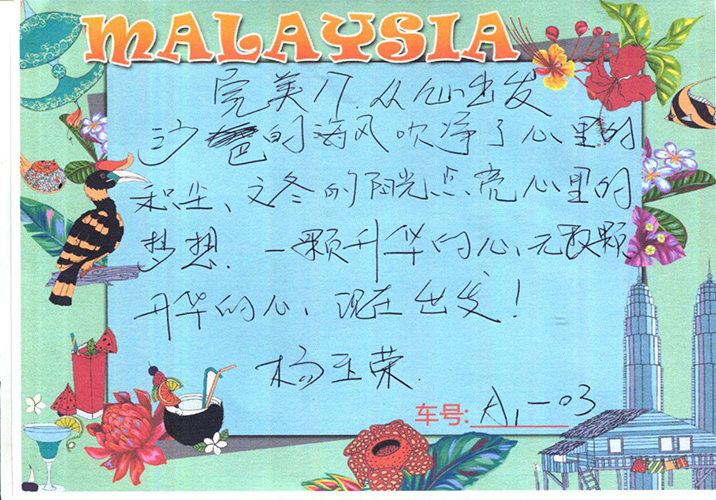 MALAYSIA
完美人从心出发
沙巴的海风吹净了心里的
积尘、文冬的阳光点亮心里的
梦想、一颗升华的心、无数颗
升华的心、现在出发！
杨玉荣
车号: A1-03